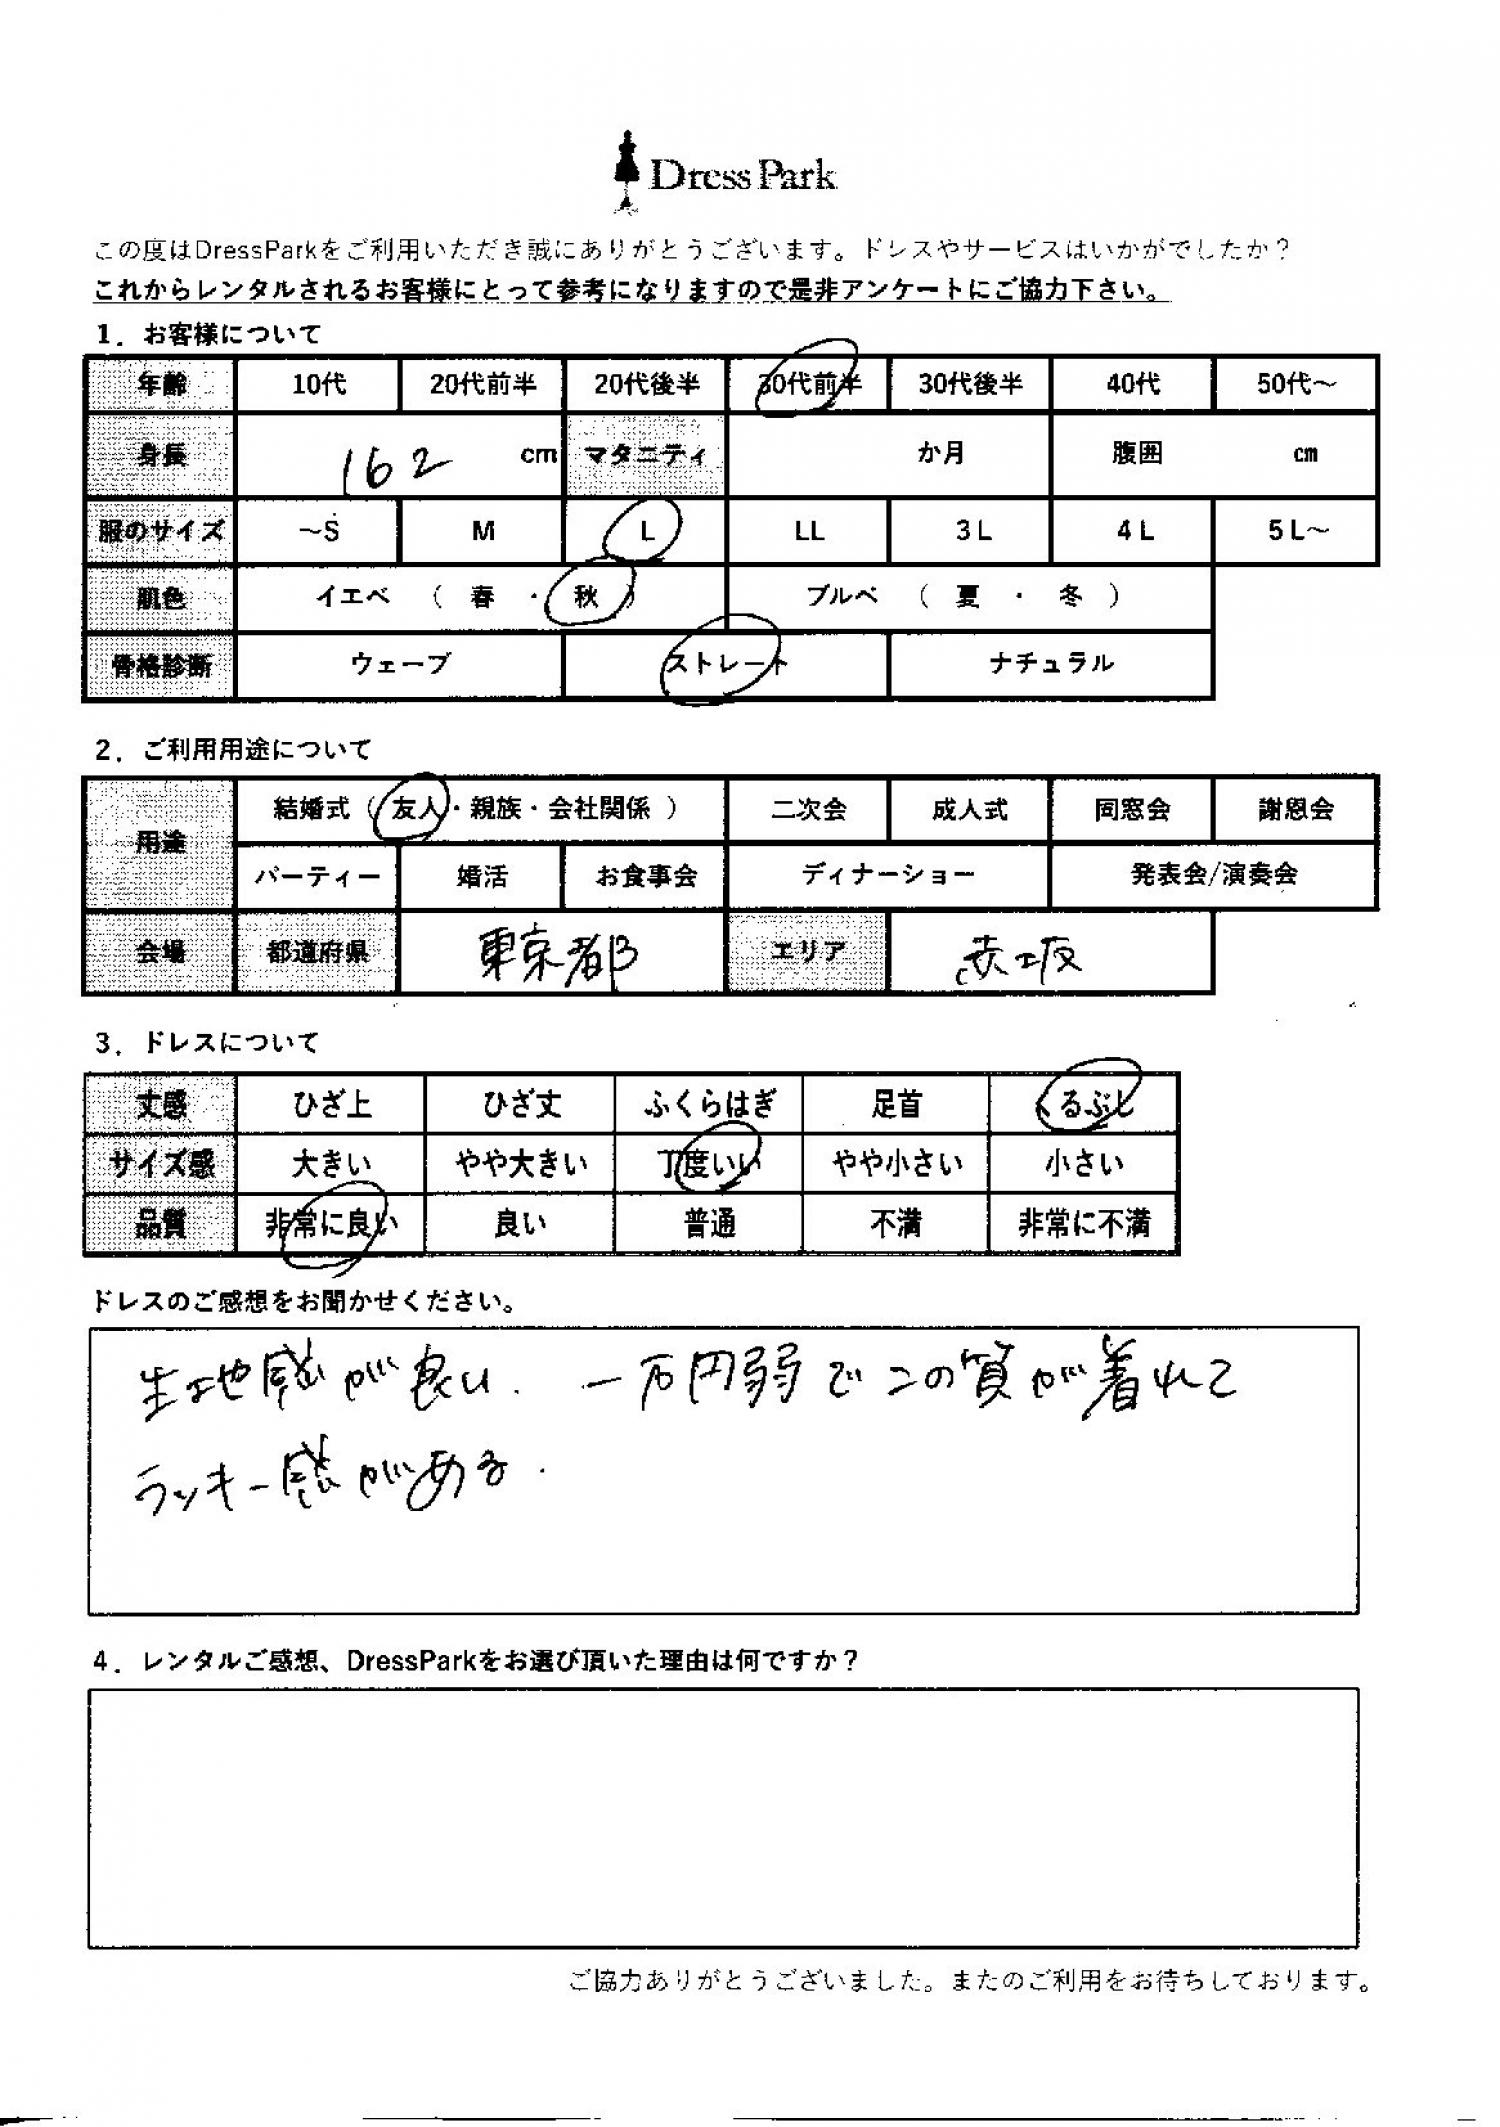 Dress Park
この度はDressParkをご利用いただき誠にありがとうございます。ドレスやサービスはいかがでしたか？
これからレンタルされるお客様にとって参考になりますので是非アンケートにご協力下さい。
1．お客様について
年齢 10代 20代前半 20代後半 30代前半 30代後半 40代 50代～
身長 162 cm マタニティ か月 腹囲 cm
服のサイズ ～S M L LL 3L 4L 5L～
肌色 イエベ （ 春 ・ 秋 ） ブルベ （ 夏 ・ 冬 ）
骨格診断 ウェーブ ストレート ナチュラル
2．ご利用用途について
用途 結婚式（ 友人・親族・会社関係 ） 二次会 成人式 同窓会 謝恩会
パーティー 婚活 お食事会 ディナーショー 発表会/演奏会
会場 都道府県 東京都 エリア 赤坂
3．ドレスについて
丈感 ひざ上 ひざ丈 ふくらはぎ 足首 くるぶし
サイズ感 大きい やや大きい 丁度いい やや小さい 小さい
品質 非常に良い 良い 普通 不満 非常に不満
ドレスのご感想をお聞かせください。
生地感が良い. 一万円弱でこの質が着れて
ラッキー感がある.
4．レンタルご感想、DressParkをお選び頂いた理由は何ですか？
ご協力ありがとうございました。またのご利用をお待ちしております。